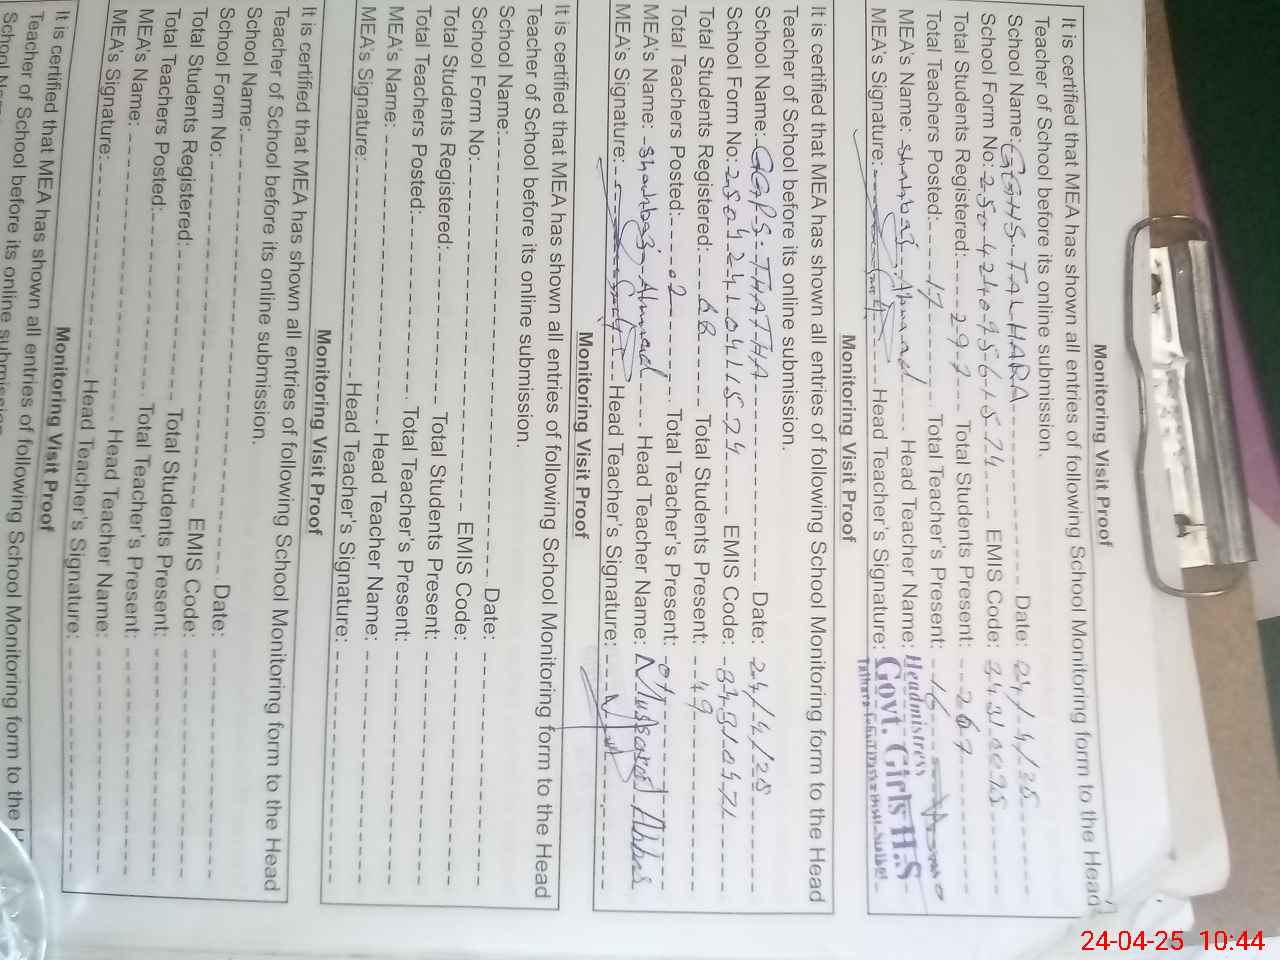 Monitoring Visit Proof
It is certified that MEA has shown all entries of following School Monitoring form to the Head
Teacher of School before its online submission.
School Name: GGHS TALHARA Date: 24/4/25
School Form No: EMIS Code:
Total Students Registered: 297 Total Students Present: 267
Total Teachers Posted: 17 Total Teacher's Present: 16
MEA's Name: Shahbaz Ahmad Head Teacher Name: Headmistress
MEA's Signature: Head Teacher's Signature: Govt. Girls H.S
Monitoring Visit Proof
It is certified that MEA has shown all entries of following School Monitoring form to the Head
Teacher of School before its online submission.
School Name: GGPS THATHA Date: 24/4/25
School Form No: EMIS Code:
Total Students Registered: Total Students Present: 49
Total Teachers Posted: 02 Total Teacher's Present:
MEA's Name: Shahbaz Ahmad Head Teacher Name: Abbas
MEA's Signature: Head Teacher's Signature:
Monitoring Visit Proof
It is certified that MEA has shown all entries of following School Monitoring form to the Head
Teacher of School before its online submission.
School Name: Date:
School Form No: EMIS Code:
Total Students Registered: Total Students Present:
Total Teachers Posted: Total Teacher's Present:
MEA's Name: Head Teacher Name:
MEA's Signature: Head Teacher's Signature:
Monitoring Visit Proof
It is certified that MEA has shown all entries of following School Monitoring form to the Head
Teacher of School before its online submission.
School Name: Date:
School Form No: EMIS Code:
Total Students Registered: Total Students Present:
Total Teachers Posted: Total Teacher's Present:
MEA's Name: Head Teacher Name:
MEA's Signature: Head Teacher's Signature:
Monitoring Visit Proof
It is certified that MEA has shown all entries of following School Monitoring form to the H
Teacher of School before its online submission.
24-04-25 10:44